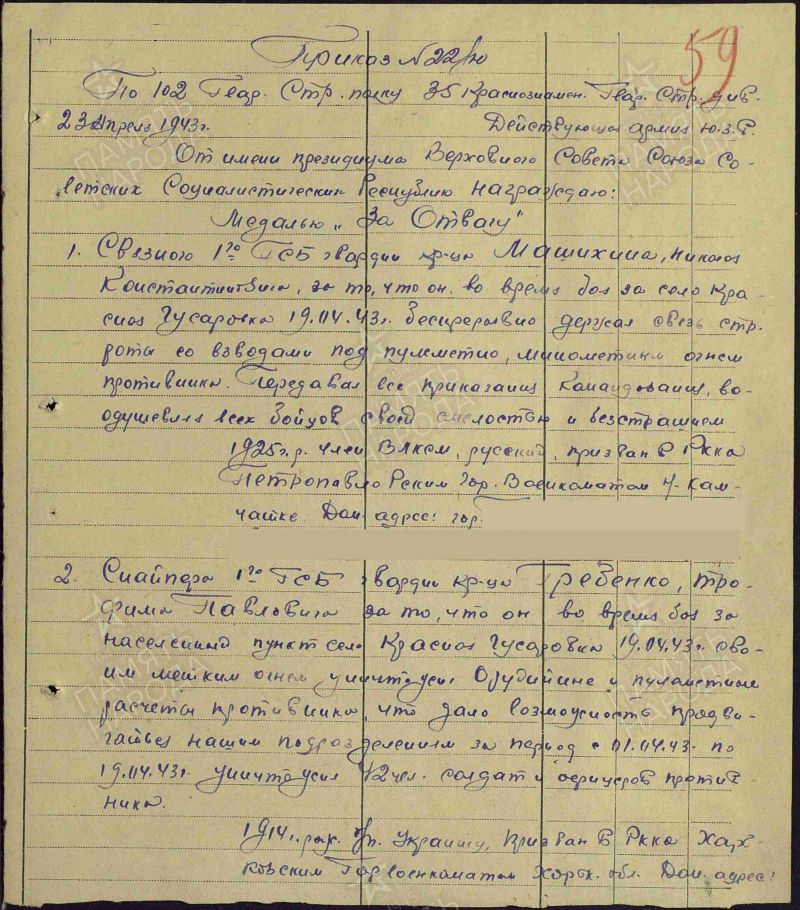 59
Приказ № 22/ю
По 102 Гвар. Стр. полку 35 Краснознамен. Гвар. Стр. див.
23 апреля 1943г. Действующая армия ю.з.ф.
От имени президиума Верховного Совета Союза Со-
ветских Социалистических Республик награждаю:
Медалью „За Отвагу"
1. Связного 1го ГСБ гвардии кр-ца Машихина, Николая
Константиновича, за то, что он во время боя за село Кра-
сная Гусаровка 19.04.43г. беспрерывно держал связь стр.
роты со взводами под пулеметно, минометным огнем
противника. Передавал все приказания командования, во-
одушевляя всех бойцов своей смелостью и безстрашием
1925г.р. член ВЛКСМ, русский, призван в РККА
Петропавловским гор. Военкоматом Н-Кам-
чатке. Дом. адрес: гор.
2. Снайпера 1го ГСБ гвардии кр-ца Гребенко, Тро-
фима Павловича за то, что он во время боя за
населенный пункт село Красная Гусаровка 19.04.43г. сво-
им метким огнем уничтожил Орудийные и пулеметные
расчеты противника, что дало возможность продви-
гаться нашим подразделениям за период с 01.04.43. по
19.04.43г. уничтожил 42 чел. солдат и офицеров против-
ника.
1914г. рож. Украинец, призван в РККА Харь-
ковским Горвоенкоматом Харьк. обл. Дом. адрес:
ПАМЯТЬ
НАРОДА